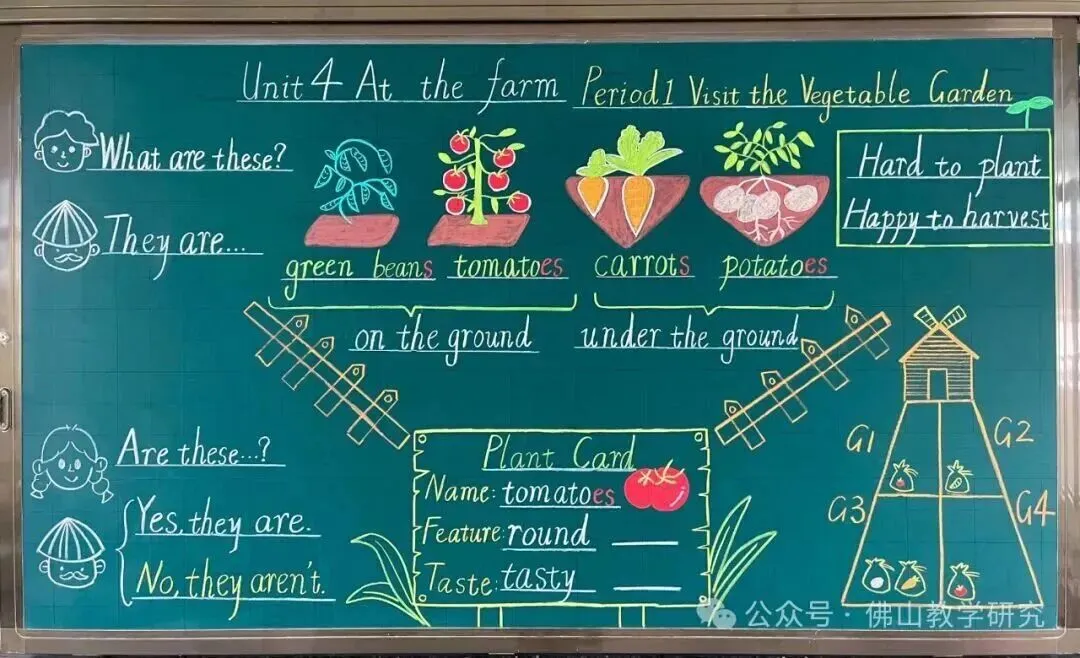 Unit 4 At the farm Period 1 Visit the Vegetable Garden
What are these?
They are...
green beans tomatoes carrots potatoes
on the ground under the ground
Hard to plant
Happy to harvest
Are these...?
Yes, they are.
No, they aren't.
Plant Card
Name: tomatoes
Feature: round
Taste: tasty
G1 G2
G3 G4
公众号·佛山教学研究